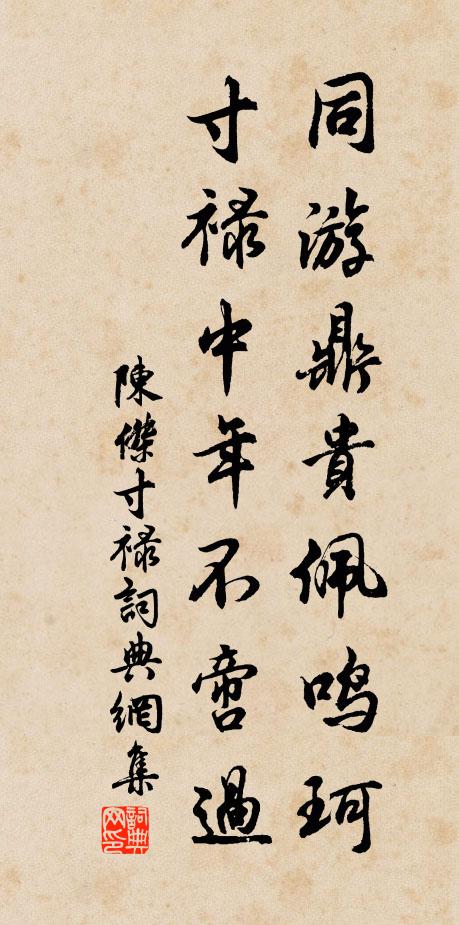 同游鼎貴佩鳴珂
寸禄中年不啻過
陳傑寸禄詞典網集
詞典網印